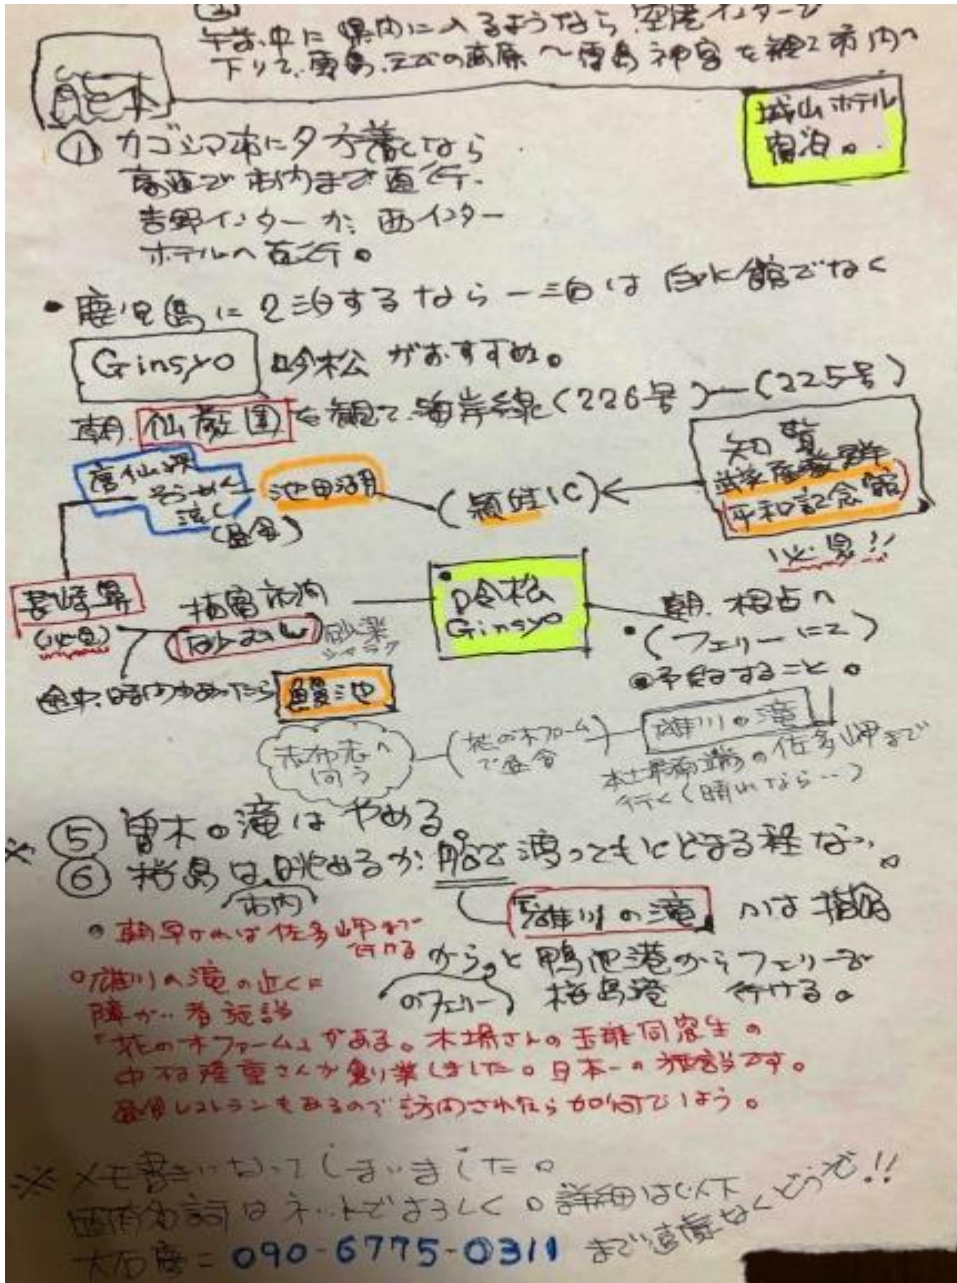 ②
午前中に県内に入るようなら、空港インターで
下りて、霧島、えびの高原〜霧島神宮を経て市内へ
城山ホテル
宿泊。
① カゴシマ市に夕方着くなら
高速で市内まで直行、
吉野インターか、西インター
ホテルへ直行。
・鹿児島に2泊するなら一泊は白水館でなく
Ginsyo 吟松がおすすめ。
朝、仙巌園を観て、海岸線(226号)ー(225号)
知覧
武家屋敷群
平和記念館
必見!!
(頴娃IC)
池田湖
唐仙峡
そうめん
流し
(昼食)
長崎鼻
(必見)
指宿市内
砂むし
砂楽
シャラク
吟松
Ginsyo
朝、根占へ
・(フェリーにて)
●予約すること。
途中、時間があったら 鰻池
志布志へ
向う
(花の木ファーム
で昼食)
雄川の滝
本土最南端の佐多岬まで
行く(晴れなら…)
※⑤ 曽木の滝はやめる。
⑥ 桜島は眺めるか、船で渡ってもいとどまる程ない。
(市内)
雄川の滝 かは指宿
・朝早ければ佐多岬まで
行ける
から。と鴨池港からフェリーで
(のフェリー) 桜島港 行ける。
○雄川の滝の近くに
障がい者施設
「花の木ファーム」がある。木場さんの玉龍同窓生の
中村隆重さんが創業しました。日本一の施設です。
昼食レストランもあるので訪問されたら如何でしょう。
※メモ書きになってしまいました。
固有名詞はネットでよろしく。詳細は以下
まで遠慮なくどうぞ!!
大石慶= 090-6775-0311